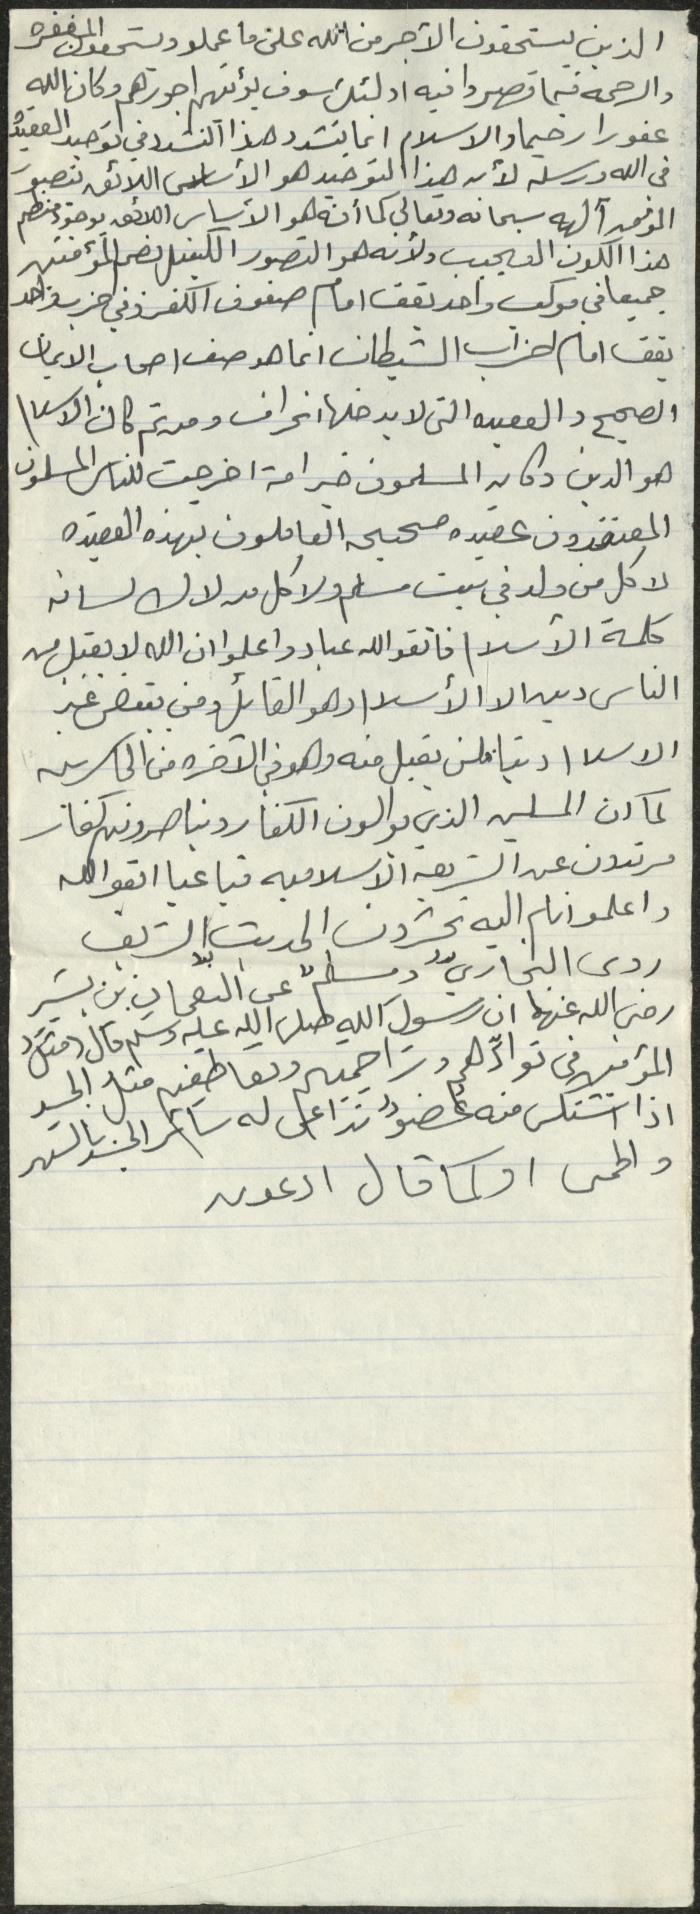 الذين يستحقون الأجر من الله على ما عملو ويستحقون المغفره
والرحمه فيما قصروا فيه اولئك سوف يؤتيهم اجورهم وكان الله
غفورا رحيما والاسلام انما يتشدد هذا التشدد في توحيد العقيده
في الله ورسله لأن هذا التوحيد هو الأساس اللائق بتصور
المؤمن آلهه سبحانه وتعالى كما أنه هو الأساس اللائق بوجود منظم
هذا الكون العجيب ولأنه هو التصور الكفيل بضم المؤمنين
جميعا في موكب واحد يقف امام صفوف الكفر وفي حزب واحد
يقف امام احزاب الشيطان انما هو صف اصحاب الايمان
الصحيح والعقيده التى لا يدخلها انحراف ومن ثم كان الاسلام
هو الدين وكان المسلمون خير امة اخرجت للناس المسلمون
المعتقدون عقيده صحيحه العاملون بهذه العقيده
لا كل من ولد في بيت مسلم ولا كل من لاك لسانه
كلمة الأسلام فاتقو الله عباد واعلموا ان الله لا يقبل من
الناس دين الا الأسلام وهو القائل ومن يبتغي غير
الاسلام دينا فلن يقبل منه وهو في الآخره من الخاسرين
كما ان المسلمين الذي يوالون الكفار ويناصرونهم كفار
مرتدون عن الشريعه الاسلاميه فيا عبا اتقو الله
واعلمو انكم اليه تحشرون الحديث الشريف
روى البخاري ومسلم عن النعمان بن بشير
رضى الله عنهما ان رسول الله صلى الله عليه وسلم قال (مثل
المؤمنين في توادّهم وتراحمهم وتعاطفهم مثل الجسد
اذا اشتكى منه عضوٌ تداعى له سائر الجسد بالسهر
والحمى او كما قال ادعون